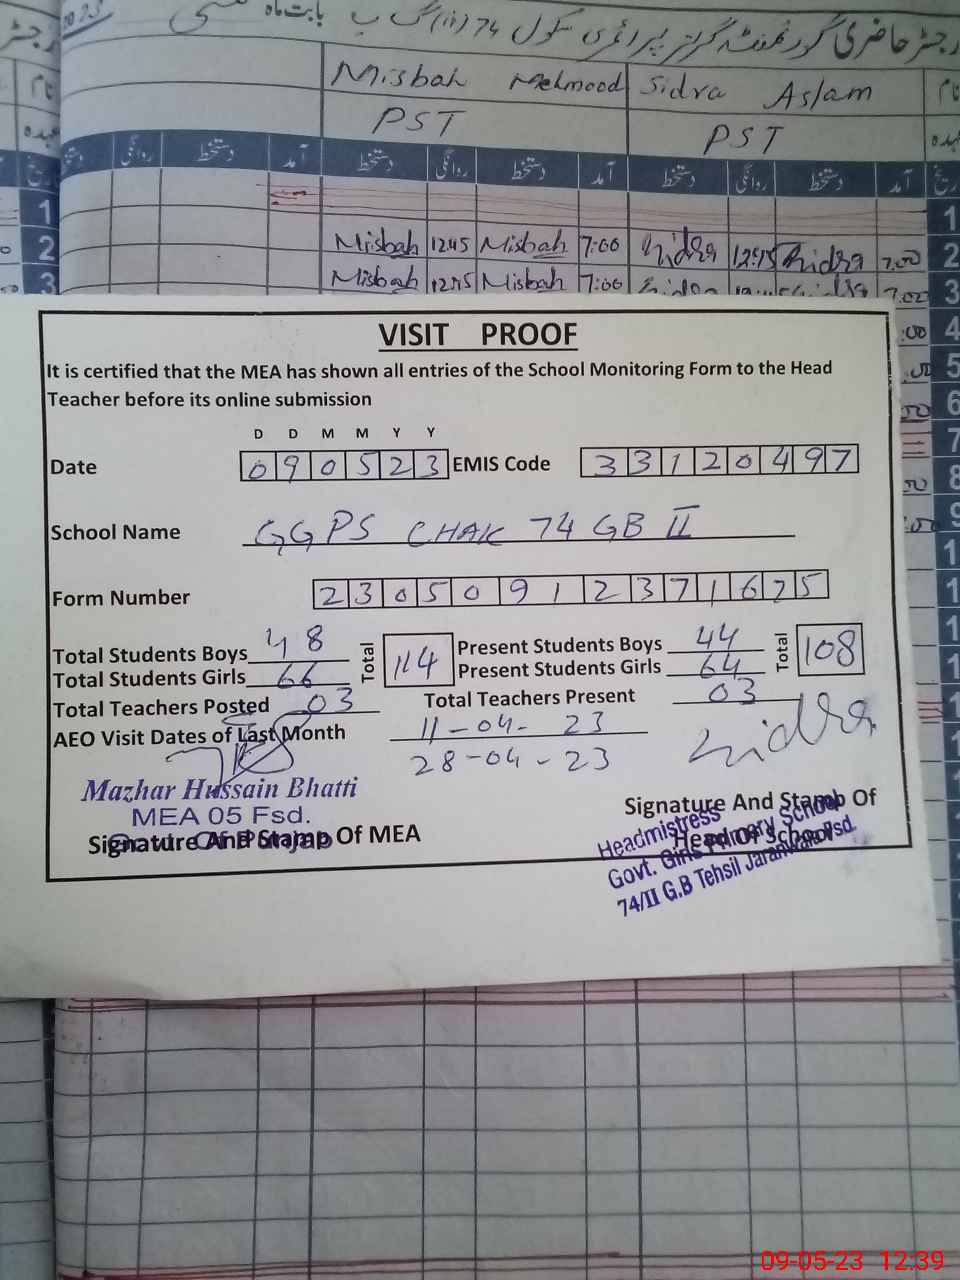 رجسٹر حاضری گورنمنٹ گرلز پرائمری سکول 74 (ii) گ ب بابت ماہ 2023
نام Sidra Aslam Misbah Mehmood
عہدہ PST PST
تاریخ آمد دستخط روانگی دستخط آمد دستخط روانگی دستخط آمد دستخط روانگی
1 1
2 Misbah 12:45 Misbah 7:00 Sidra 12:45 Sidra 7:00 2
3 Misbah 12:45 Misbah 7:00 Sidra 7:02 3
4
5
6
7
8
9
VISIT PROOF
It is certified that the MEA has shown all entries of the School Monitoring Form to the Head
Teacher before its online submission
D D M M Y Y
Date 0 9 0 5 2 3 EMIS Code 3 3 1 2 0 4 9 7
School Name GGPS CHAK 74 GB II
Form Number 2 3 0 5 0 9 1 2 3 7 1 6 2 5
Total Students Boys 48 Total 114 Present Students Boys 44 Total 108
Total Students Girls 66 Present Students Girls 64
Total Teachers Posted 03 Total Teachers Present 03
AEO Visit Dates of Last Month 11-04-23
28-04-23
Sidra
Mazhar Hussain Bhatti
MEA 05 Fsd.
Govt. Of Punjab
Signature And Stamp Of MEA
Signature And Stamp Of
Head Of School
Headmistress
Govt. Girls Primary School
74/II G.B Tehsil Jaranwala Fsd.
09-05-23 12:39